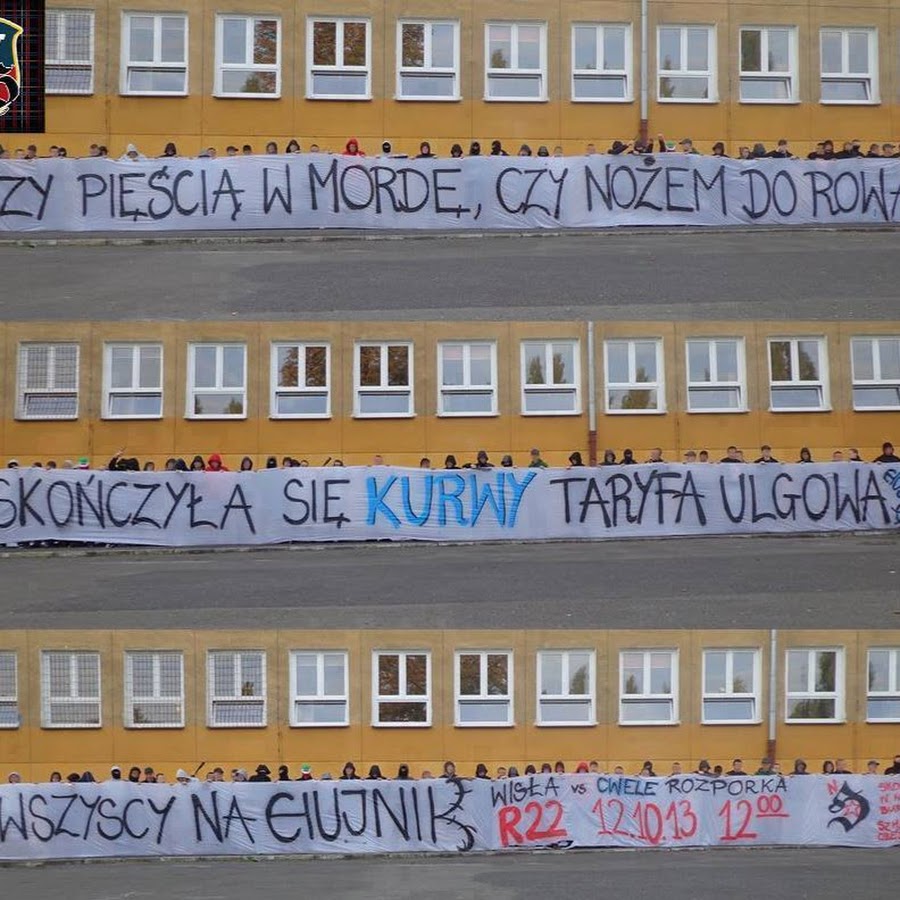 ZY PIĘŚCIĄ W MORDĘ, CZY NOŻEM DO ROWA
SKOŃCZYŁA SIĘ KURWY TARYFA ULGOWA
WSZYSCY NA
WISŁA vs CWELE ROZPORKA
R22 12.10.13 12⁰⁰